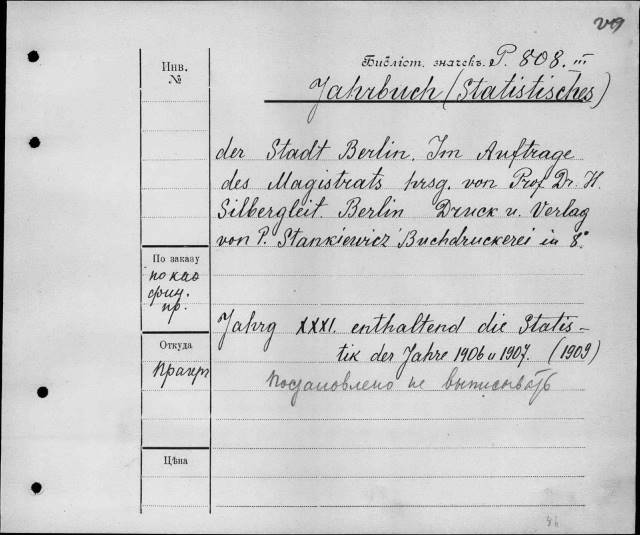 249
Библіот. значекъ. P. 808. III
Инв.
№
Jahrbuch (Statistisches)
der Stadt Berlin. Im Auftrage
des Magistrats hrsg. von Prof. Dr. H.
Silbergleit. Berlin Druck u. Verlag
von P. Stankiewicz' Buchdruckerei in 8°.
По заказу
по каѳ
фин.
пр.
Jahrg XXXI. enthaltend die Statis-
tik der Jahre 1906 u 1907. (1909)
Откуда
Прагер
Постановлено не выписывать
Цѣна